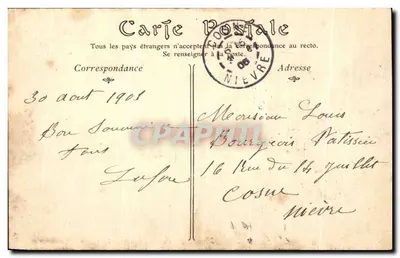 Carte Postale
Tous les pays étrangers n'acceptent pas la correspondance au recto.
Se renseigner à la Poste.
Correspondance
Adresse
NIEVRE
30 aout 1905
Bon Souvenir
Monsieur Louis
Bourgeois Patissier
16 Rue du 14 Juillet
Cosne
Nièvre